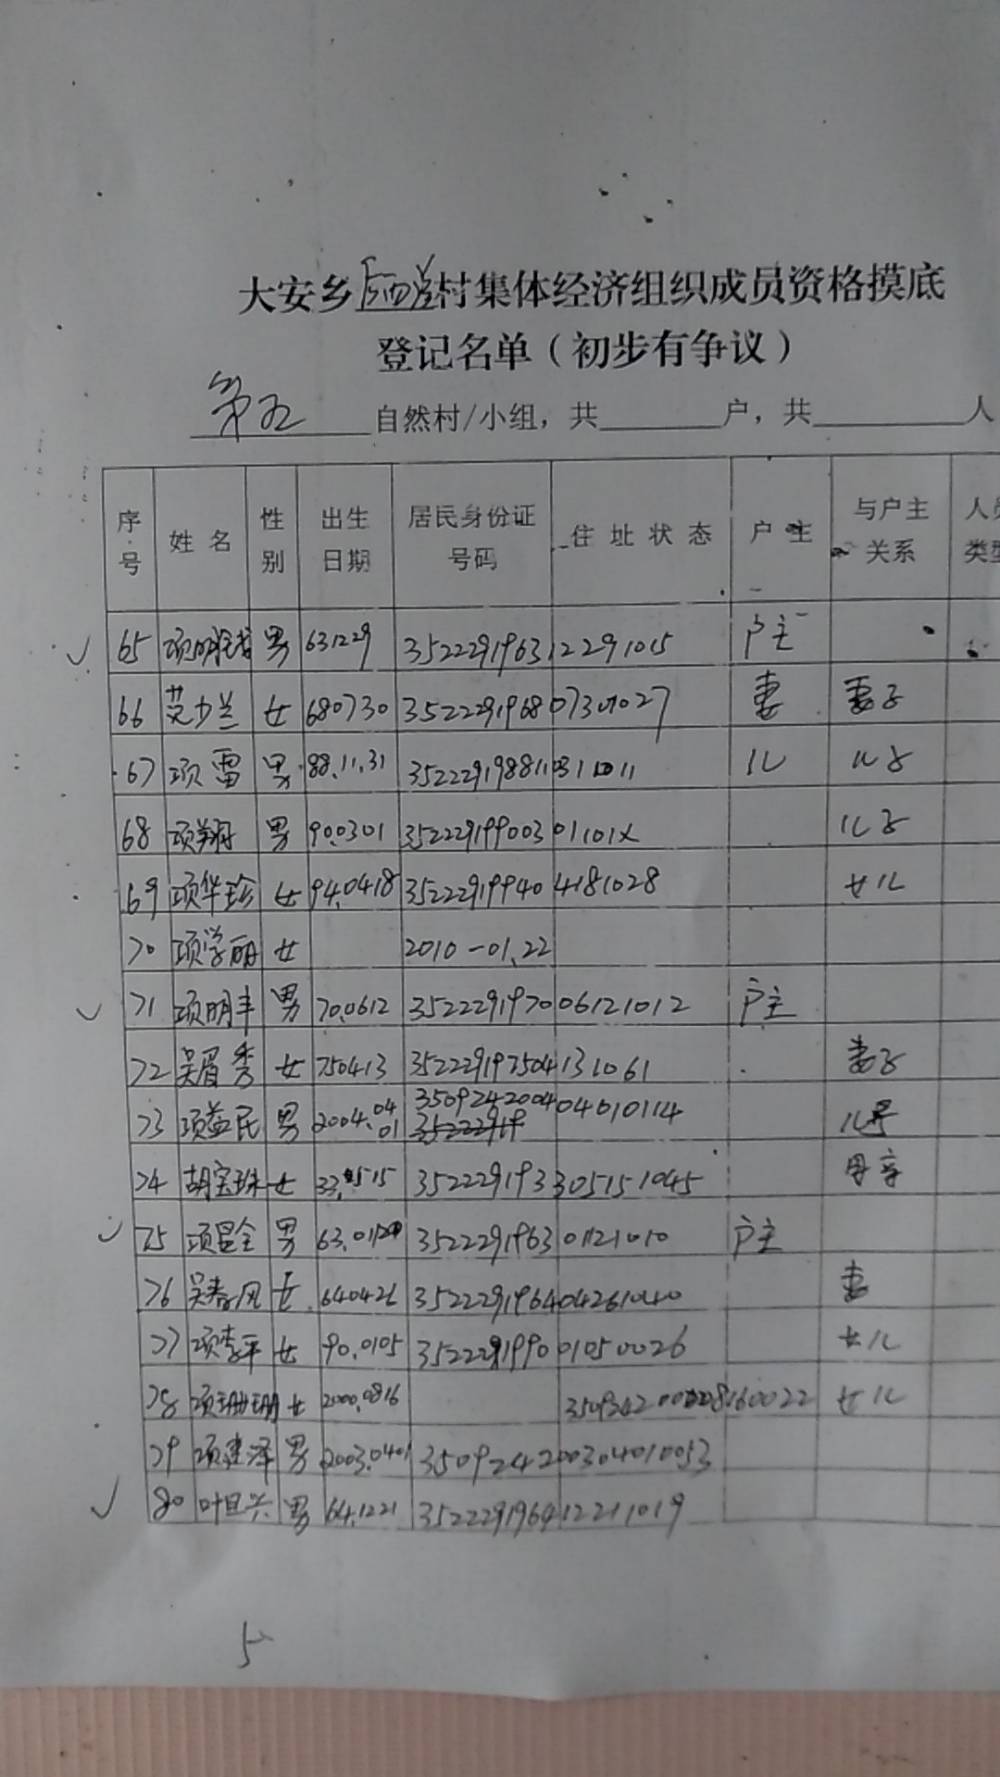 大安乡 村集体经济组织成员资格摸底
登记名单（初步有争议）
第五 自然村/小组，共 户，共 人
序号 姓名 性别 出生日期 居民身份证号码 住址状态 户主 与户主关系 人员类型
65 项明钱 男 631229 352229196312291015 户主
66 范少兰 女 680730 352229196807301027 妻 妻子
67 项雷 男 88.11.31 儿 儿子
68 项翔 男 90.0301 35222919900301101X 儿子
69 项华珍 女 94.0418 352229199404181028 女儿
70 项学丽 女 2010-01.22
71 项明丰 男 70.0612 352229197006121012 户主
72 吴眉秀 女 750413 352229197504131061 妻子
73 项益民 男 2004.04 01 350924200404010114 儿子
74 胡宝珠 女 33.0515 352229193305151045 母亲
75 项昌全 男 63.0112 352229196301121010 户主
76 吴春凤 女 640426 352229196404261040 妻
77 项李平 女 90.0105 352229199001050026 女儿
78 项珊珊 女 2000.0816 女儿
79 项建泽 男 2003.0401 350924200304010053
80 叶旦兴 男 64.1221 352229196412211019
5